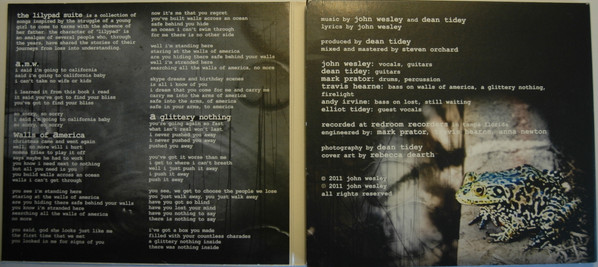 the lilypad suite is a collection of
songs inspired by the struggle of a young
girl to come to terms with the absence of
her father. the character of "lilypad" is
an analogue of several people who, through
the years, have shared the stories of their
journeys from loss into understanding
a.m.w.
i said i'm going to california
said i'm going to california baby
i can't take no wife or kids
i learned it from this book i read
it said you've got to find your bliss
you've got to find your bliss
so sorry, so sorry
i said i'm going to california baby
so sorry, so sorry
walls of america
christmas came and went again
well, no more will i hurt
mommy tries to play it off
says maybe he had to work
you know i need want to nothing
but all you need is you
you build walls across an ocean
walls i can't get through
you see i'm standing here
staring at the walls of america
are you hiding there safe behind your walls
you know i'm stranded here
searching all the walls of america
no more
you said, god she looks just like me
the first time that we met
you looked in me for signs of you
now it's me that you regret
you've built walls across an ocean
safe behind you hide
an ocean i can't swim through
for me there is no other side
well i'm standing here
staring at the walls of america
are you hiding there safe behind your walls
well i'm stranded here
searching all the walls of america, no more
skype dreams and birthday scenes
is all i know of you
i dream that you come for me and carry me
carry me into the arms of america
safe into the arms, of america
safe in your arms, to america
a glittery nothing
you're going again so fast
what isn't real won't last
i never pushed you away
i never pushed you away
pushed you away
you've got it worse than me
i get to where i can't breath
well i just push it away
i push it away
push it away
you see, we get to choose the people we lose
you just walk away, you just walk away
have you got so blind
have you lost your mind
have you nothing to say
there is nothing to say
i've got a box you made
filled with your countless charades
a glittery nothing inside
there was nothing inside
music by john wesley and dean tidey
lyrics by john wesley
produced by dean tidey
mixed and mastered by steven orchard
john wesley: vocals, guitars
dean tidey: guitars
mark prator: drums, percussion
travis hearne: bass on walls of america, a glittery nothing,
firelight
andy irvine: bass on lost, still waiting
elliot tidey: guest vocals
recorded at redroom recorders in tampa florida
engineered by: mark prator, travis hearne, anna newton
photography by dean tidey
cover art by rebecca dearth
© 2011 john wesley
℗ 2011 john wesley
all rights reserved